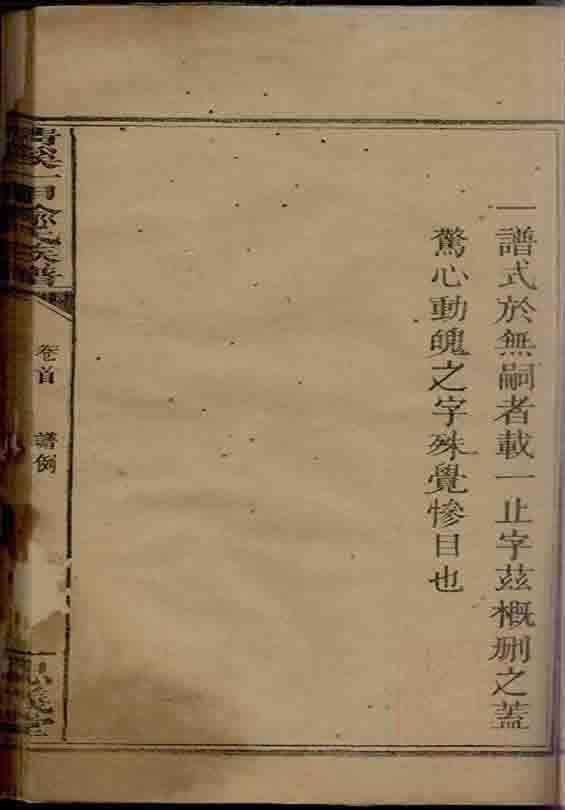 一譜式於無嗣者載一止字茲概刪之蓋
驚心動魄之字殊覺慘目也
氏族譜
卷首
譜例